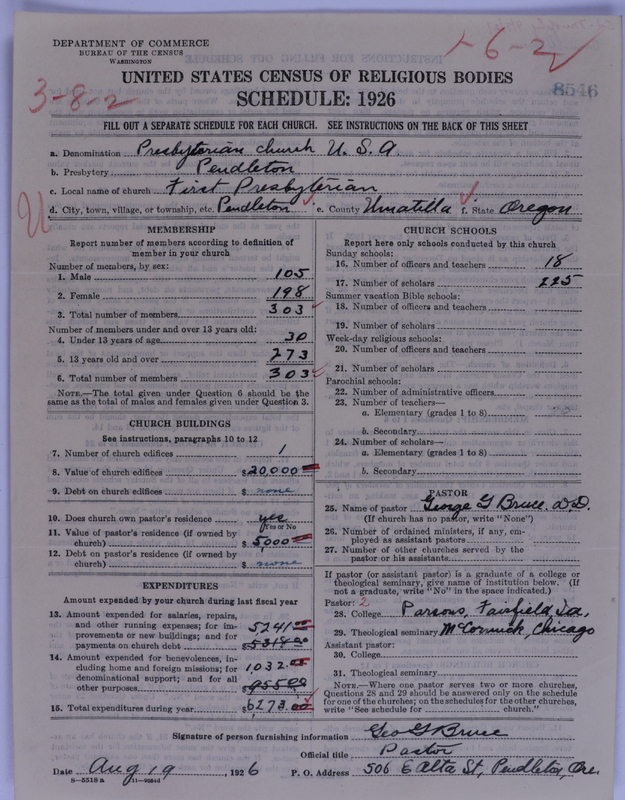 DEPARTMENT OF COMMERCE
BUREAU OF THE CENSUS
WASHINGTON
1-6-2
8546
3-8-2
UNITED STATES CENSUS OF RELIGIOUS BODIES
SCHEDULE: 1926
FILL OUT A SEPARATE SCHEDULE FOR EACH CHURCH. SEE INSTRUCTIONS ON THE BACK OF THIS SHEET
a. Denomination Presbyterian church U.S.A.
b. Presbytery Pendleton
c. Local name of church First Presbyterian
d. City, town, village, or township, etc. Pendleton e. County Umatilla f. State Oregon
MEMBERSHIP
Report number of members according to definition of
member in your church
Number of members, by sex:
1. Male 105
2. Female 198
3. Total number of members 303
Number of members under and over 13 years old:
4. Under 13 years of age 30
5. 13 years old and over 273
6. Total number of members 303
NOTE.—The total given under Question 6 should be the
same as the total of males and females given under Question 3.
CHURCH BUILDINGS
See instructions, paragraphs 10 to 12
7. Number of church edifices 1
8. Value of church edifices $20,000
9. Debt on church edifices $ none
10. Does church own pastor's residence yes
(Yes or No)
11. Value of pastor's residence (if owned by
church) $5,000
12. Debt on pastor's residence (if owned by
church) $ none
EXPENDITURES
Amount expended by your church during last fiscal year
13. Amount expended for salaries, repairs,
and other running expenses; for im-
provements or new buildings; and for
payments on church debt $5241.00
5318.00
14. Amount expended for benevolences, in-
cluding home and foreign missions; for
denominational support; and for all
other purposes 1032.00
$955.00
15. Total expenditures during year $6273.00
CHURCH SCHOOLS
Report here only schools conducted by this church
Sunday schools:
16. Number of officers and teachers 18
17. Number of scholars 225
Summer vacation Bible schools:
18. Number of officers and teachers
19. Number of scholars
Week-day religious schools:
20. Number of officers and teachers
21. Number of scholars
Parochial schools:
22. Number of administrative officers
23. Number of teachers—
a. Elementary (grades 1 to 8)
b. Secondary
24. Number of scholars—
a. Elementary (grades 1 to 8)
b. Secondary
PASTOR
25. Name of pastor George G Bruce D.D.
(If church has no pastor, write "None")
26. Number of ordained ministers, if any, em-
ployed as assistant pastors
27. Number of other churches served by the
pastor or his assistants
If pastor (or assistant pastor) is a graduate of a college or
theological seminary, give name of institution below. (If
not a graduate, write "No" in the space indicated.)
Pastor: 2
28. College Parsons, Fairfield, Ia.
29. Theological seminary McCormick, Chicago
Assistant pastor:
30. College
31. Theological seminary
NOTE.—Where one pastor serves two or more churches,
Questions 28 and 29 should be answered only on the schedule
for one of the churches; on the schedules for the other churches,
write "See schedule for church."
Signature of person furnishing information Geo G Bruce
Official title Pastor
Date Aug 19, 1926 P. O. Address 506 E Alta St, Pendleton, Ore.
8-5518 a